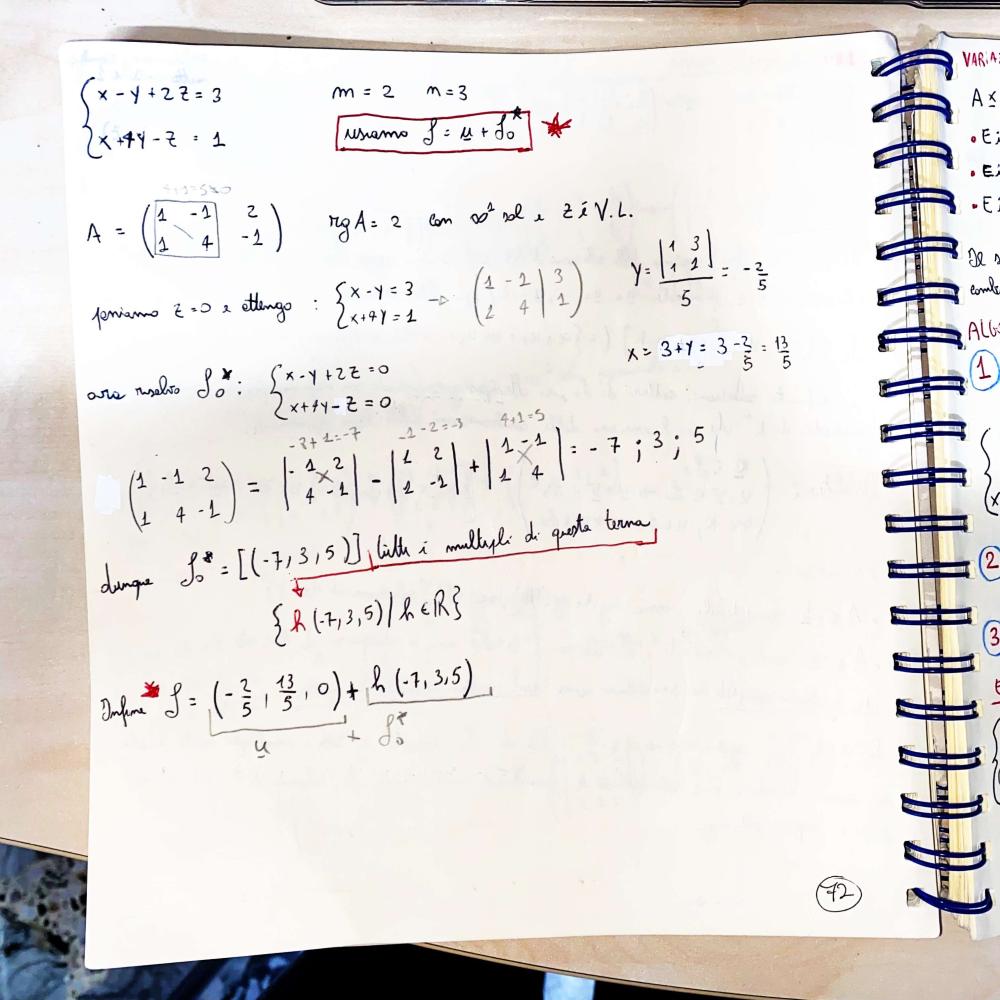 x - y + 2z = 3
x + 4y - z = 1
m = 2 n = 3
usiamo S = u + S₀*
4+1=5≠0
A = (1 -1 2
1 4 -1)
rgA = 2 con ∞¹ sol e z è V.L.
poniamo z=0 e ottengo : {x - y = 3 → (1 -1 | 3
x + 4y = 1 2 4 | 1)
y = |1 3
1 1| / 5 = -2/5
x = 3 + y = 3 - 2/5 = 13/5
ora risolvo S₀*: {x - y + 2z = 0
x + 4y - z = 0
-8+1=-7 -1-2=-3 4+1=5
(1 -1 2
1 4 -1) = |-1 2
4 -1| - |1 2
1 -1| + |1 -1
1 4| = -7 ; 3 ; 5
dunque S₀* = [(-7, 3, 5)] tutti i multipli di questa terna
{h (-7, 3, 5) / h ∈ ℝ}
Infine S = (-2/5, 13/5, 0) + h (-7, 3, 5)
u + S₀*
72
VARIA
A x
• E
• E
• E
ALGO
1
2
3